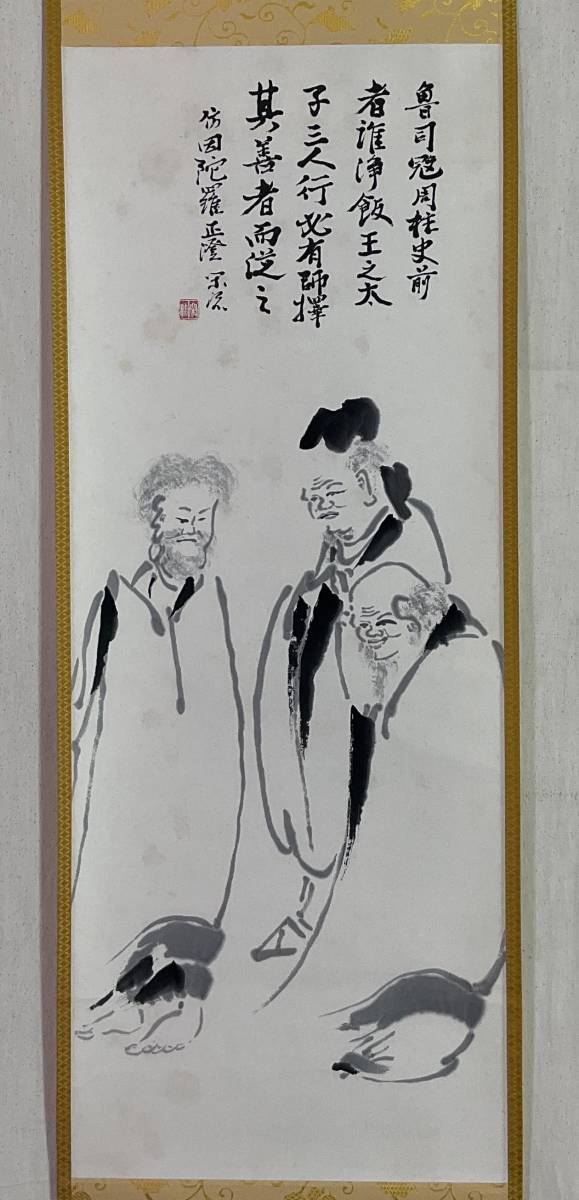 魯司寇周柱史前
者誰淨飯王之太
子三人行必有師擇
其善者而從之
仿因陀羅 正澄